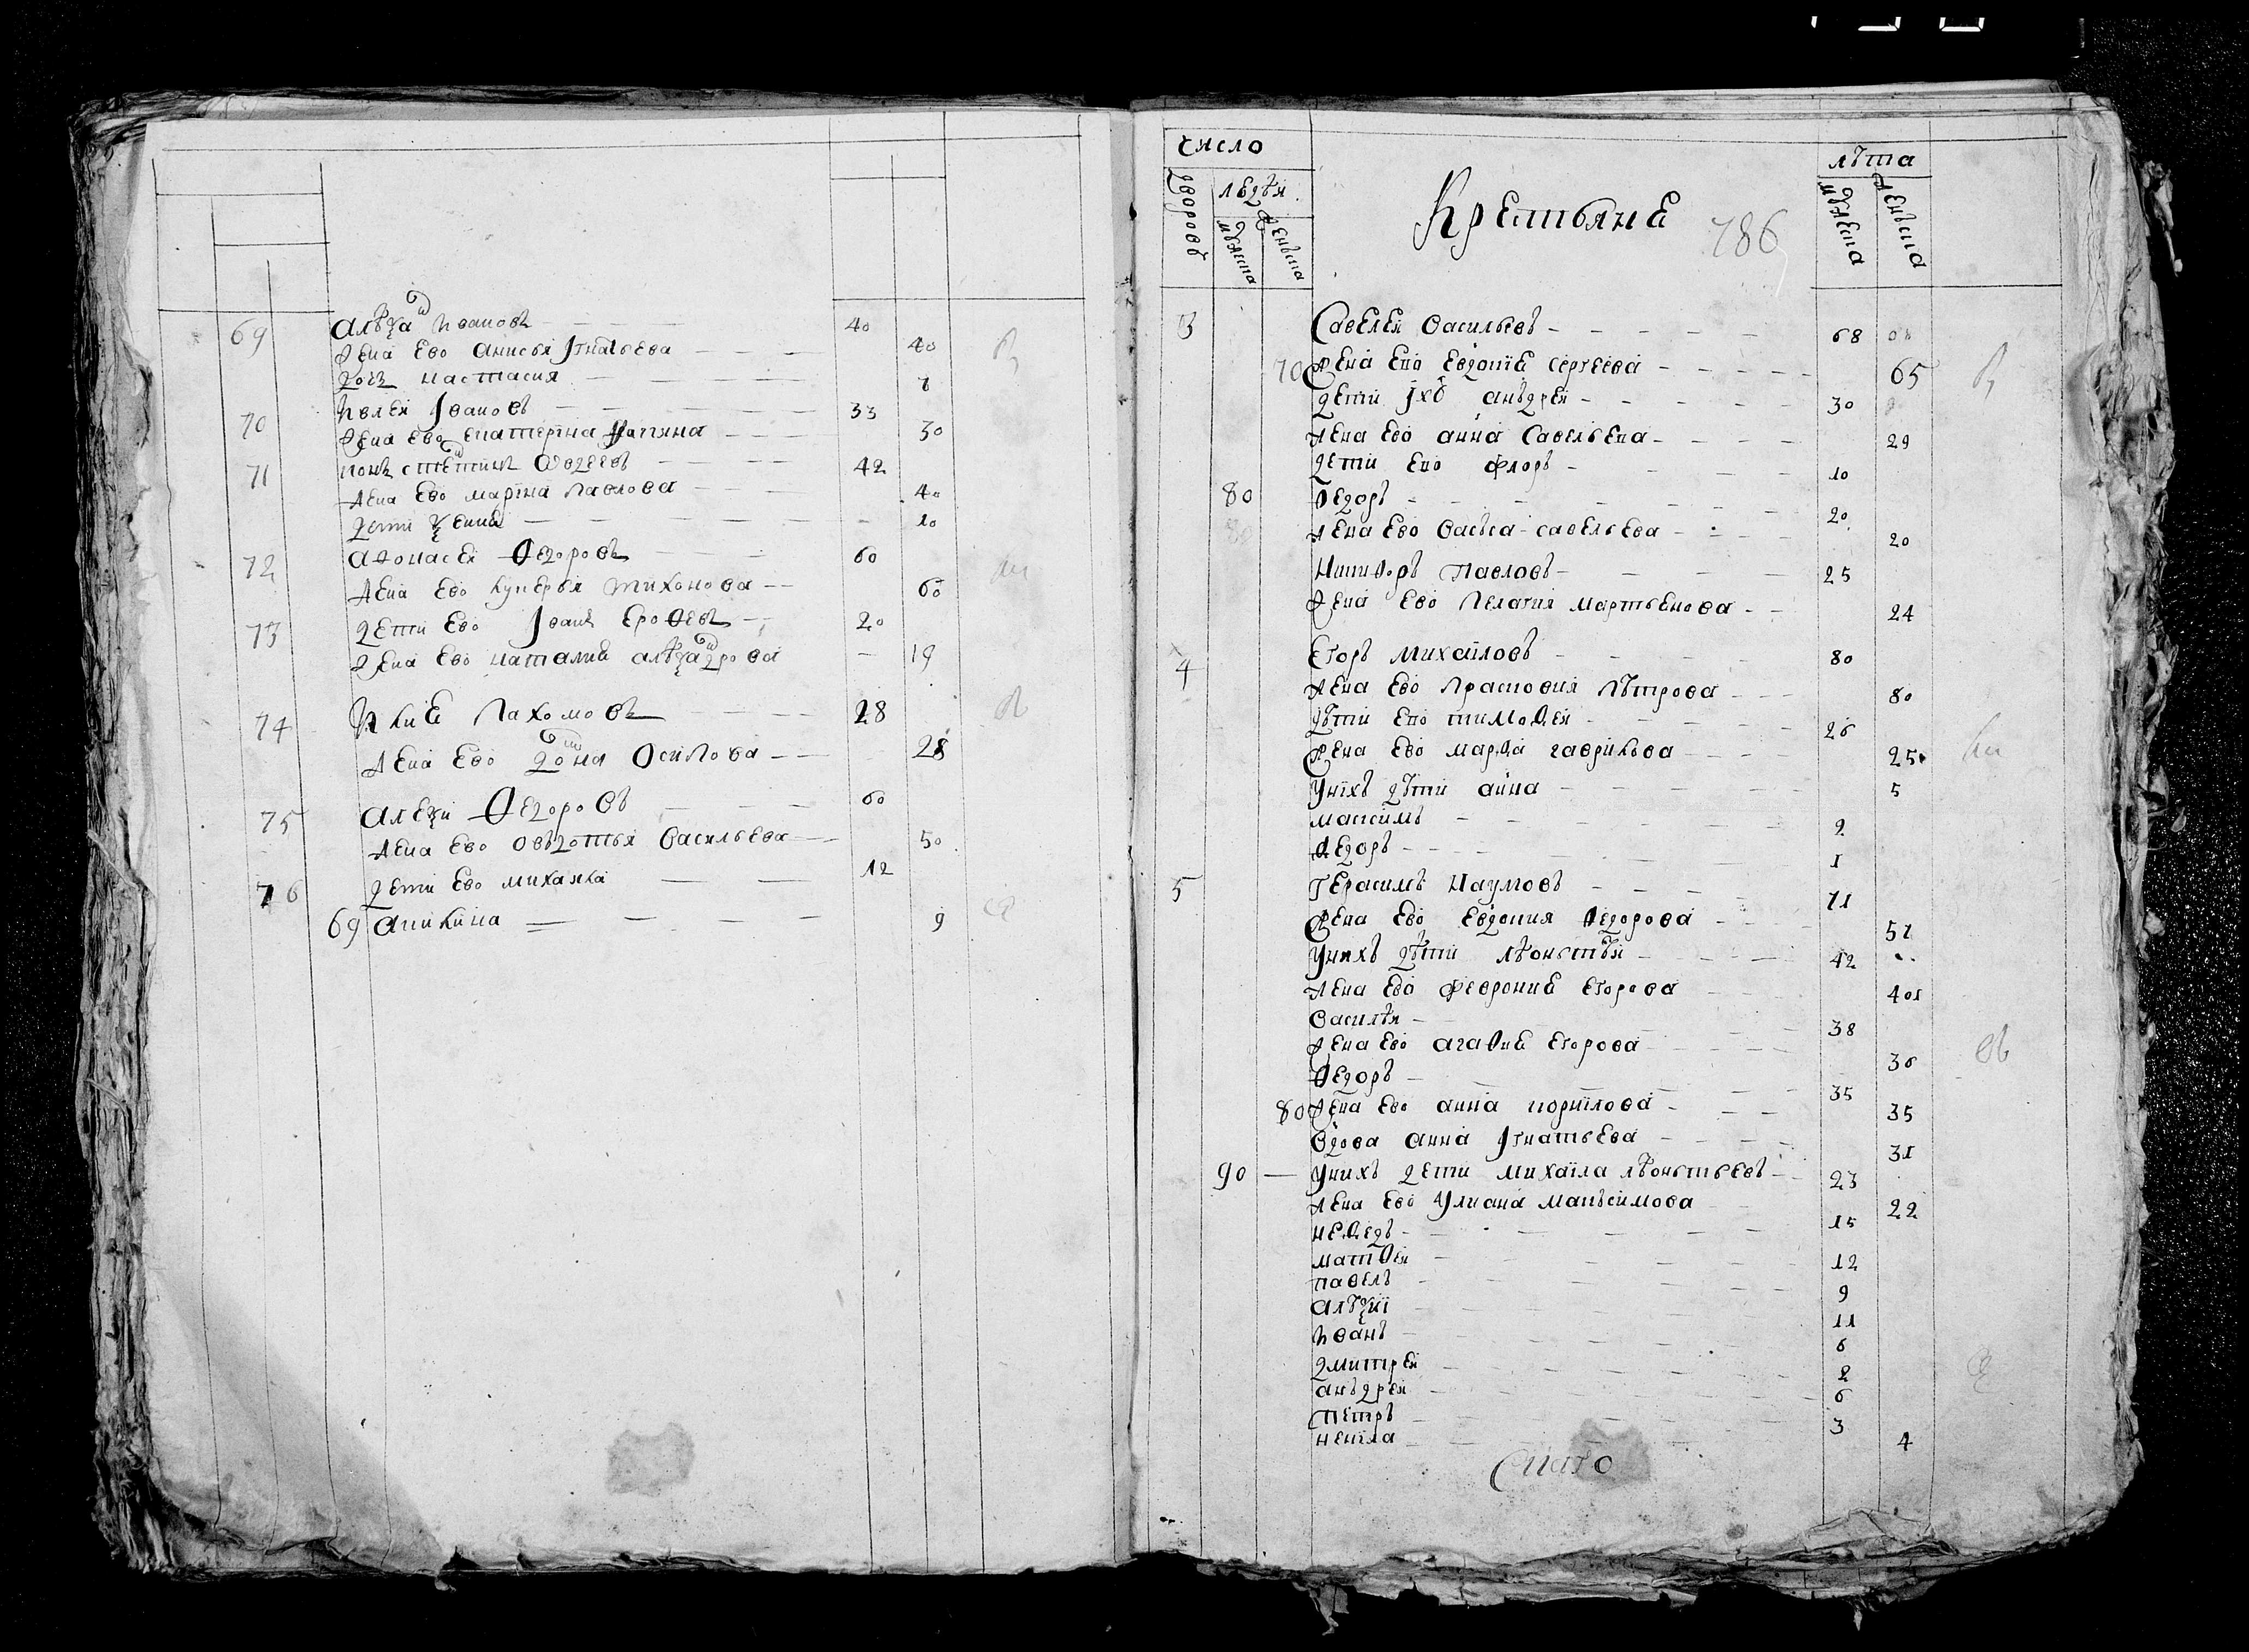 69 Алѣѯа Ивановъ 40
жена ево анисья Игнатьева 40
дочь настасия 7
70 Иовлей Ивановъ 33
жена ево екатерина 30
71 42
жена ево марина павлова 40
дети 10
72 афонасей Федоровъ 60
жена ево лукерья тихонова 60
73 дети ево Иванъ ерофевъ 20
жена ево наталия 19
74 пахомовъ 28
жена ево домна осипова 28
75 алеѯи Федоровъ 60
жена ево овдотья васильева 50
76 дети ево михаила 12
69 акилина 9
число
дворовъ
людей
мужеска
женьска
Крестьяне
786
лѣта
мужеска
женьска
3 Савелей васильевъ 68
70 жена ево евдокие сергеева 65
дети ихъ анъдрей 30
жена ево анна савельева 29
дети ево флоръ 10
80 Федоръ 20
жена ево васъса савельева 20
Никифоръ павловъ 25
жена ево пелагия мартьенова 24
4 Егоръ михаиловъ 80
жена ево прасковия пѣтрова 80
дѣти ево тимофей 26
жена ево марфа гаврилова 25
унихъ дѣти анна 5
максимъ 2
Федоръ 1
5 Герасимъ наумовъ 71
жена ево евдокия Федорова 51
унихъ дѣти лѣонътѣй 42
жена ево феврония егорова 401
василѣй 38
жена ево агафие егорова 36
Федоръ 35
80 жена ево анна корнилова 35
вдова анна Игнатьева 31
90 унихъ дети михаила лѣонътьевъ 23
жена ево улиана макъсимова 22
нефедъ 15
матфей 12
павелъ 9
алѣѯии 11
иванъ 6
дмитрей 2
анъдрей 6
петръ 3
ненила 4